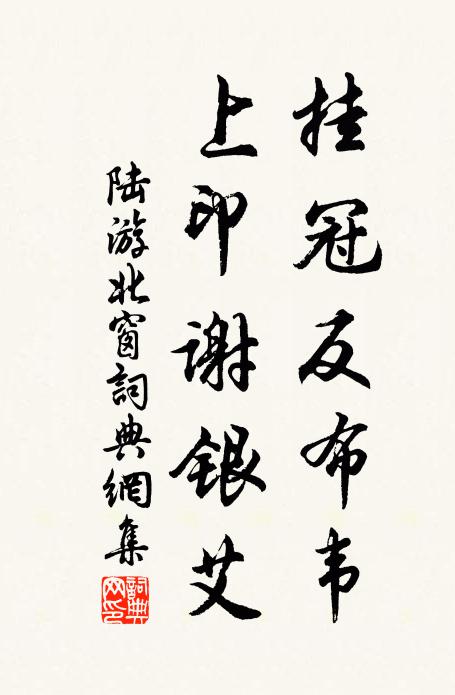 挂冠反布韦
上印谢银艾
陆游北窗詞典網集
詞典网印